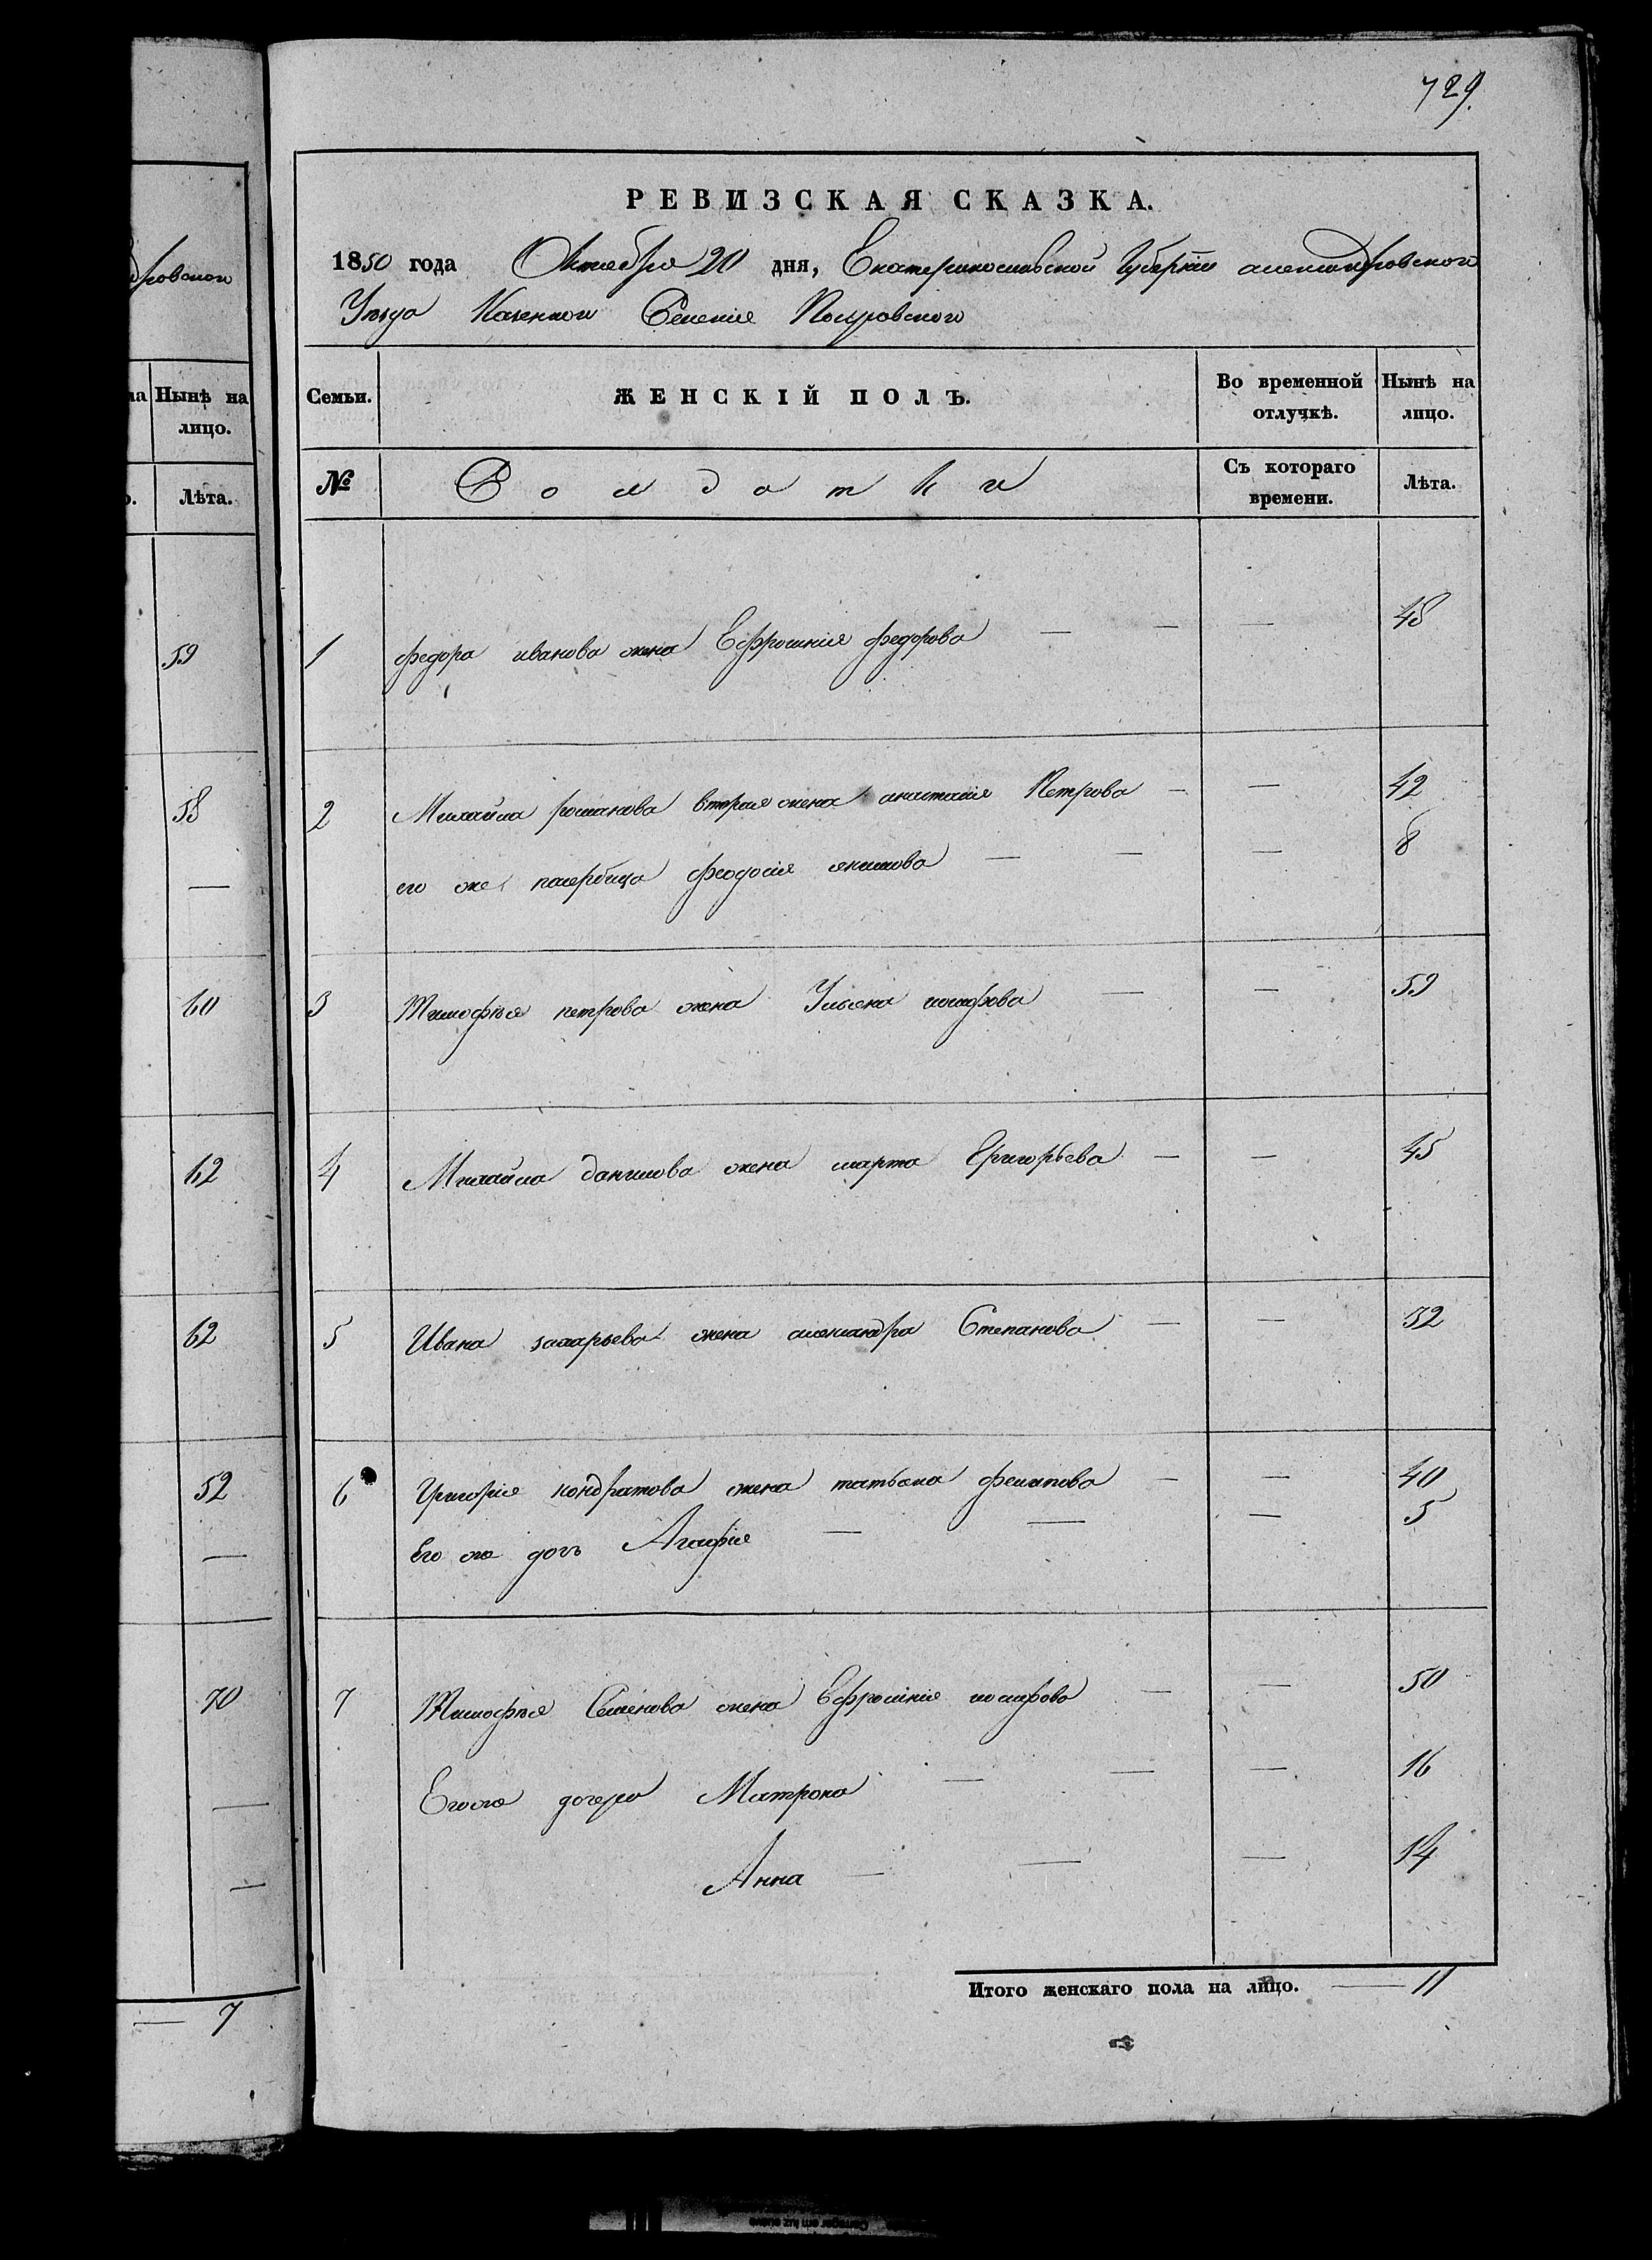 729.
РЕВИЗСКАЯ СКАЗКА.
1850 года Октебря 20 дня, Екатеринославской Губерніи александровского
Уезда Казенного Селенія Покровского
дровского
Семьи.
ЖЕНСКІЙ ПОЛЪ.
Во временной отлучкѣ.
Нынѣ на лицо.
№
Солдатки
Съ котораго времени.
Лѣта.
1 федора иванова жена Ефросинія федорова — — — 48
2 Михайла романова вторая жена анастасія Петрова — — 42
его же падчерица феодосія якимова — — — 8
3 Тимофѣя петрова жена Ульяна иосифова — — 59
4 Михайла данилова жена марта Григорьева — — 45
5 Ивана захарьева жена александра Степанова — — 52
6 Григорія кондратова жена татьяна филипова — — 40
Его же дочь Агафія — — — 5
7 Тимофѣя Семенова жена Ефросинія иосифова — — 50
Его же дочери Матрона — — — 16
Анна — — — 14
Итого женскаго пола на лицо. — 11
Нынѣ на
лицо.
Лѣта.
59
58
—
60
62
62
52
—
70
—
—
— 7